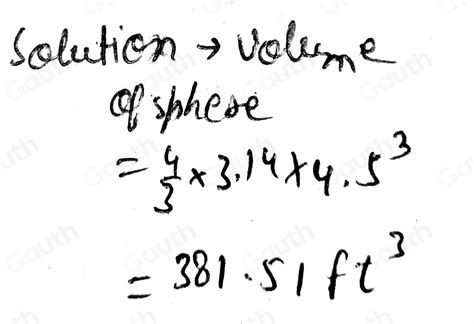 Solution → Volume
of sphere
= 4/3 × 3.14 × 4.5³
= 381.51 ft³